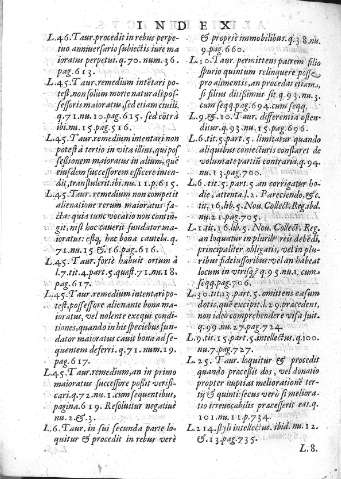 INDEX
L.46. Taur. procedit in rebus perpe-
tuo anniversario subiectis iure ma
ioratus perpetui. q.70. num.36.
pag.613.
L.45. Taur. remedium intētari po-
test, non solum morte naturali pos-
sessoris maioratus, sed etiam civili.
q.71. nu.10. pag.615. sed cōtrà
ibi. nu.15. pag.516.
L.45. Taur. remedium intentari non
potest à tertio in vita illius, qui pos
sessionem maioratus in alium, quē
eiusdem successorem efficere inten-
dit, transtulerit. ibi. nu.11. p.615.
L.45. Taur. remedium non competit
alienatione rerum maioratus fa-
cta: quia tunc vocatio non contin-
git, nisi hoc caverit fundator maio-
ratus: estq; hæc bona cautela. q.
71. nu.15 & 16. pag.616.
L.45. Taur. fortè habuit ortum à
l.7. tit.4. part.5. quæst.71. nu.18.
pag.617.
L.45. Taur. remedium intentari po-
test, possessore alienante bona ma-
ioratus, vel nolente exequi condi-
tiones, quando in his speciebus fun-
dator maioratus cavit bona ad se-
quentem deferri. q.71. num.19.
pag.617.
L.45. Taur. remedium, an in primo
maioratus successore possit verifi-
cari. q.72. nu.1. cum sequentibus,
pagina.619. Resolvitur negativè
nu.2. & 3.
L.6. Taur. in sui secunda parte lo-
quitur & procedit in rebus verè
& propriè immobilibus. q.38. nu.
9. pag.660.
L.10. Taur. permittens patrem filio
spurio quintum relinquere posse
pro alimentis, an procedat etiam,
si filius ditissimus sit q.93. nu.3.
cum seqq. pag.694. cum seqq.
L.9. & 10. Taur. differentia osten-
ditur. q.93. nu.15. pag.696.
L.6. tit.5. part.5. limitatur quando
aliquibus coniecturis constaret de
voluntate partiū contraria. q.94.
nu.13. pag.700.
L.6. tit.5. part.5. an corrigatur ho-
die, attenta l.1. Pareciendo. &c.
tit.16. lib.5. Nou. Collect. Reg. ibd.
nu.21. pag.705.
L.1. tit.16. lib.5. Nou. Collect. Reg.
an loquatur in pluribus reis debēdi
principaliter obligatis, vel in plu-
ribus fideiussoribus: vel an habeat
locum in utrisq; q.95. nu.1. cum-
seqq. pag.706.
L.30. tit.13. part.5. omittens casum
dotis, quē excipit l.19. præcedent.
non ideò comprehendere visa fuit.
q.99. nu.27. pag.724.
L.9. tit.15. part.5. intellectus. q.100.
nu.7. pag.727.
L.25. Taur. loquitur & procedit
quando præcessit dos, vel donatio
propter nuptias melioratione ter-
tij & quinti: secus verò si meliora-
tio irrevocabilis præcesserit eas. q.
101. nu.11. p.734.
L.214. styli intellectus. ibid. nu.12.
& 13. pag.735.
L.8.